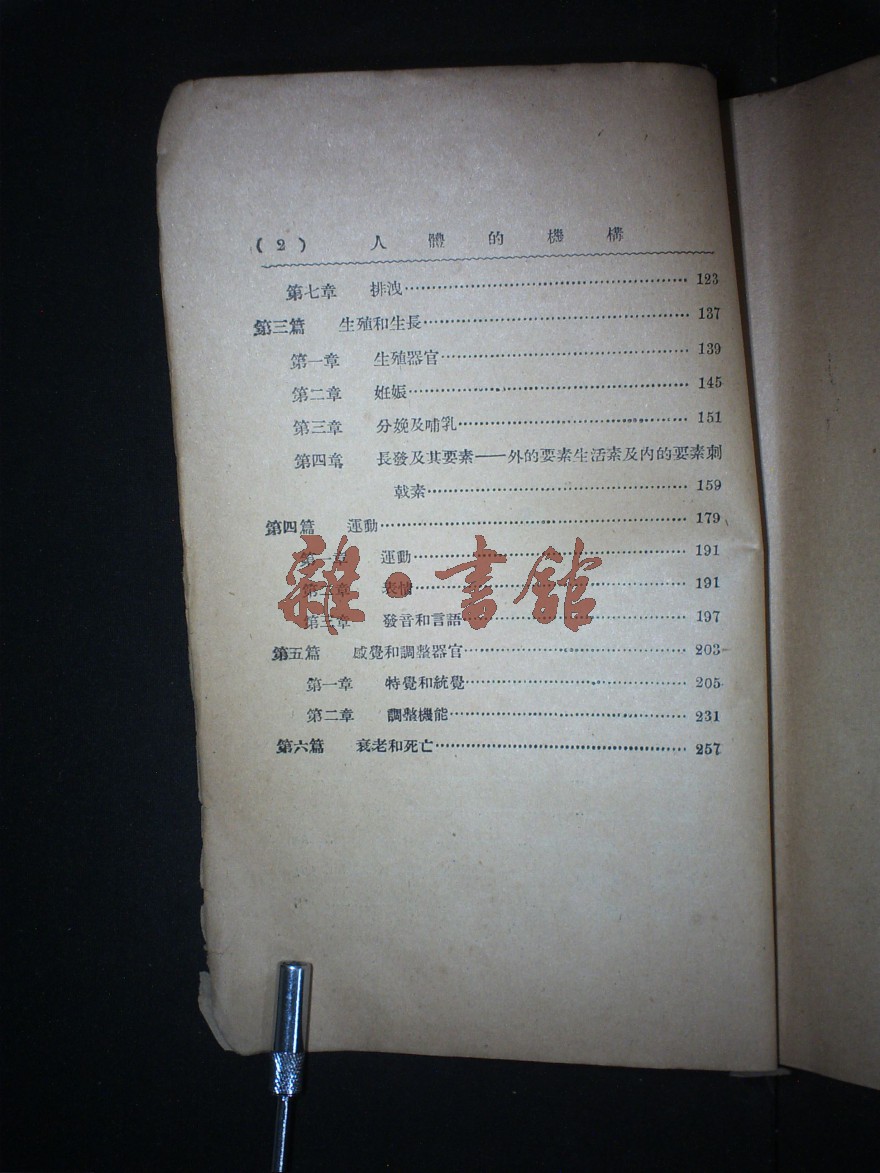 ( 2 ) 人體的機構
第七章 排洩 123
第三篇 生殖和生長 137
第一章 生殖器官 139
第二章 妊娠 145
第三章 分娩及哺乳 151
第四章 長發及其要素——外的要素生活素及內的要素刺
戟素 159
第四篇 運動 179
第一章 運動 191
第二章 表情 191
第三章 發音和言語 197
第五篇 感覺和調整器官 203
第一章 特覺和統覺 205
第二章 調整機能 231
第六篇 衰老和死亡 257
雜·書館